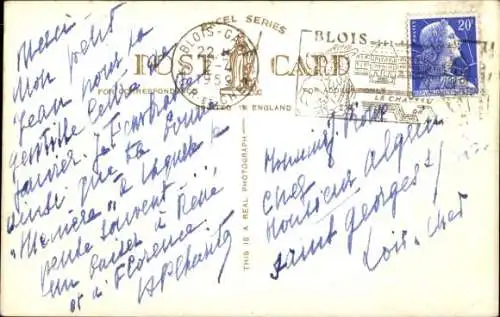 EXCEL SERIES
POST CARD
FOR CORRESPONDENCE
FOR ADDRESS ONLY
PRINTED IN ENGLAND
THIS IS A REAL PHOTOGRAPH
BLOIS-G
22
1959
BLOIS
LE CHATEAU
20F
Merci
Mon petit
Jean pour ta
gentille lettre de
Janvier. Je t'embrasse
ainsi que ta
"Mémère" à laquelle je
pense souvent
un baiser à René
et à Florence.
Monsieur
chez
Monsieur
Saint Georges s/
Loir et Cher